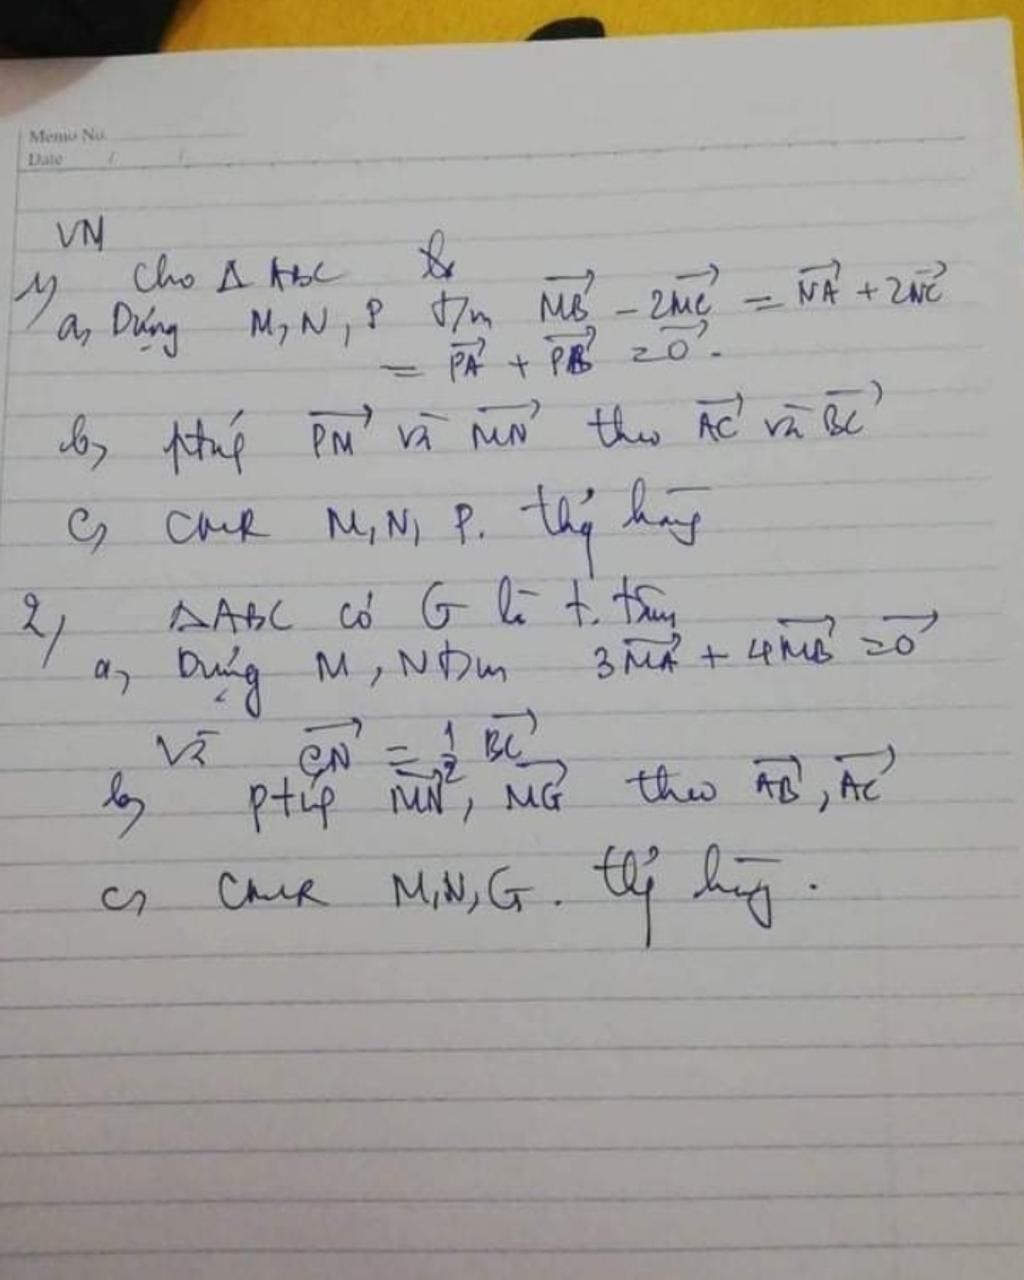 Memo No.
Date / /
VM
1) Cho Δ ABC
a, Dựng M, N, P t/m $\overrightarrow{MB} - 2\overrightarrow{MC} = \overrightarrow{NA} + 2\overrightarrow{NC}$
$= \overrightarrow{PA} + \overrightarrow{PB} = \overrightarrow{0}$.
b, ptích $\overrightarrow{PM}$ và $\overrightarrow{MN}$ theo $\overrightarrow{AC}$ và $\overrightarrow{BC}$
c, CMR M, N, P. thg hàng
2, ΔABC có G là t. tâm
a, Dựng M, N t/m $3\overrightarrow{MA} + 4\overrightarrow{MB} = \overrightarrow{0}$
và $\overrightarrow{CN} = \frac{1}{2} \overrightarrow{BC}$
b, ptích $\overrightarrow{MN}$, $\overrightarrow{MG}$ theo $\overrightarrow{AB}$, $\overrightarrow{AC}$
c, CMR M, N, G. thg hàng.